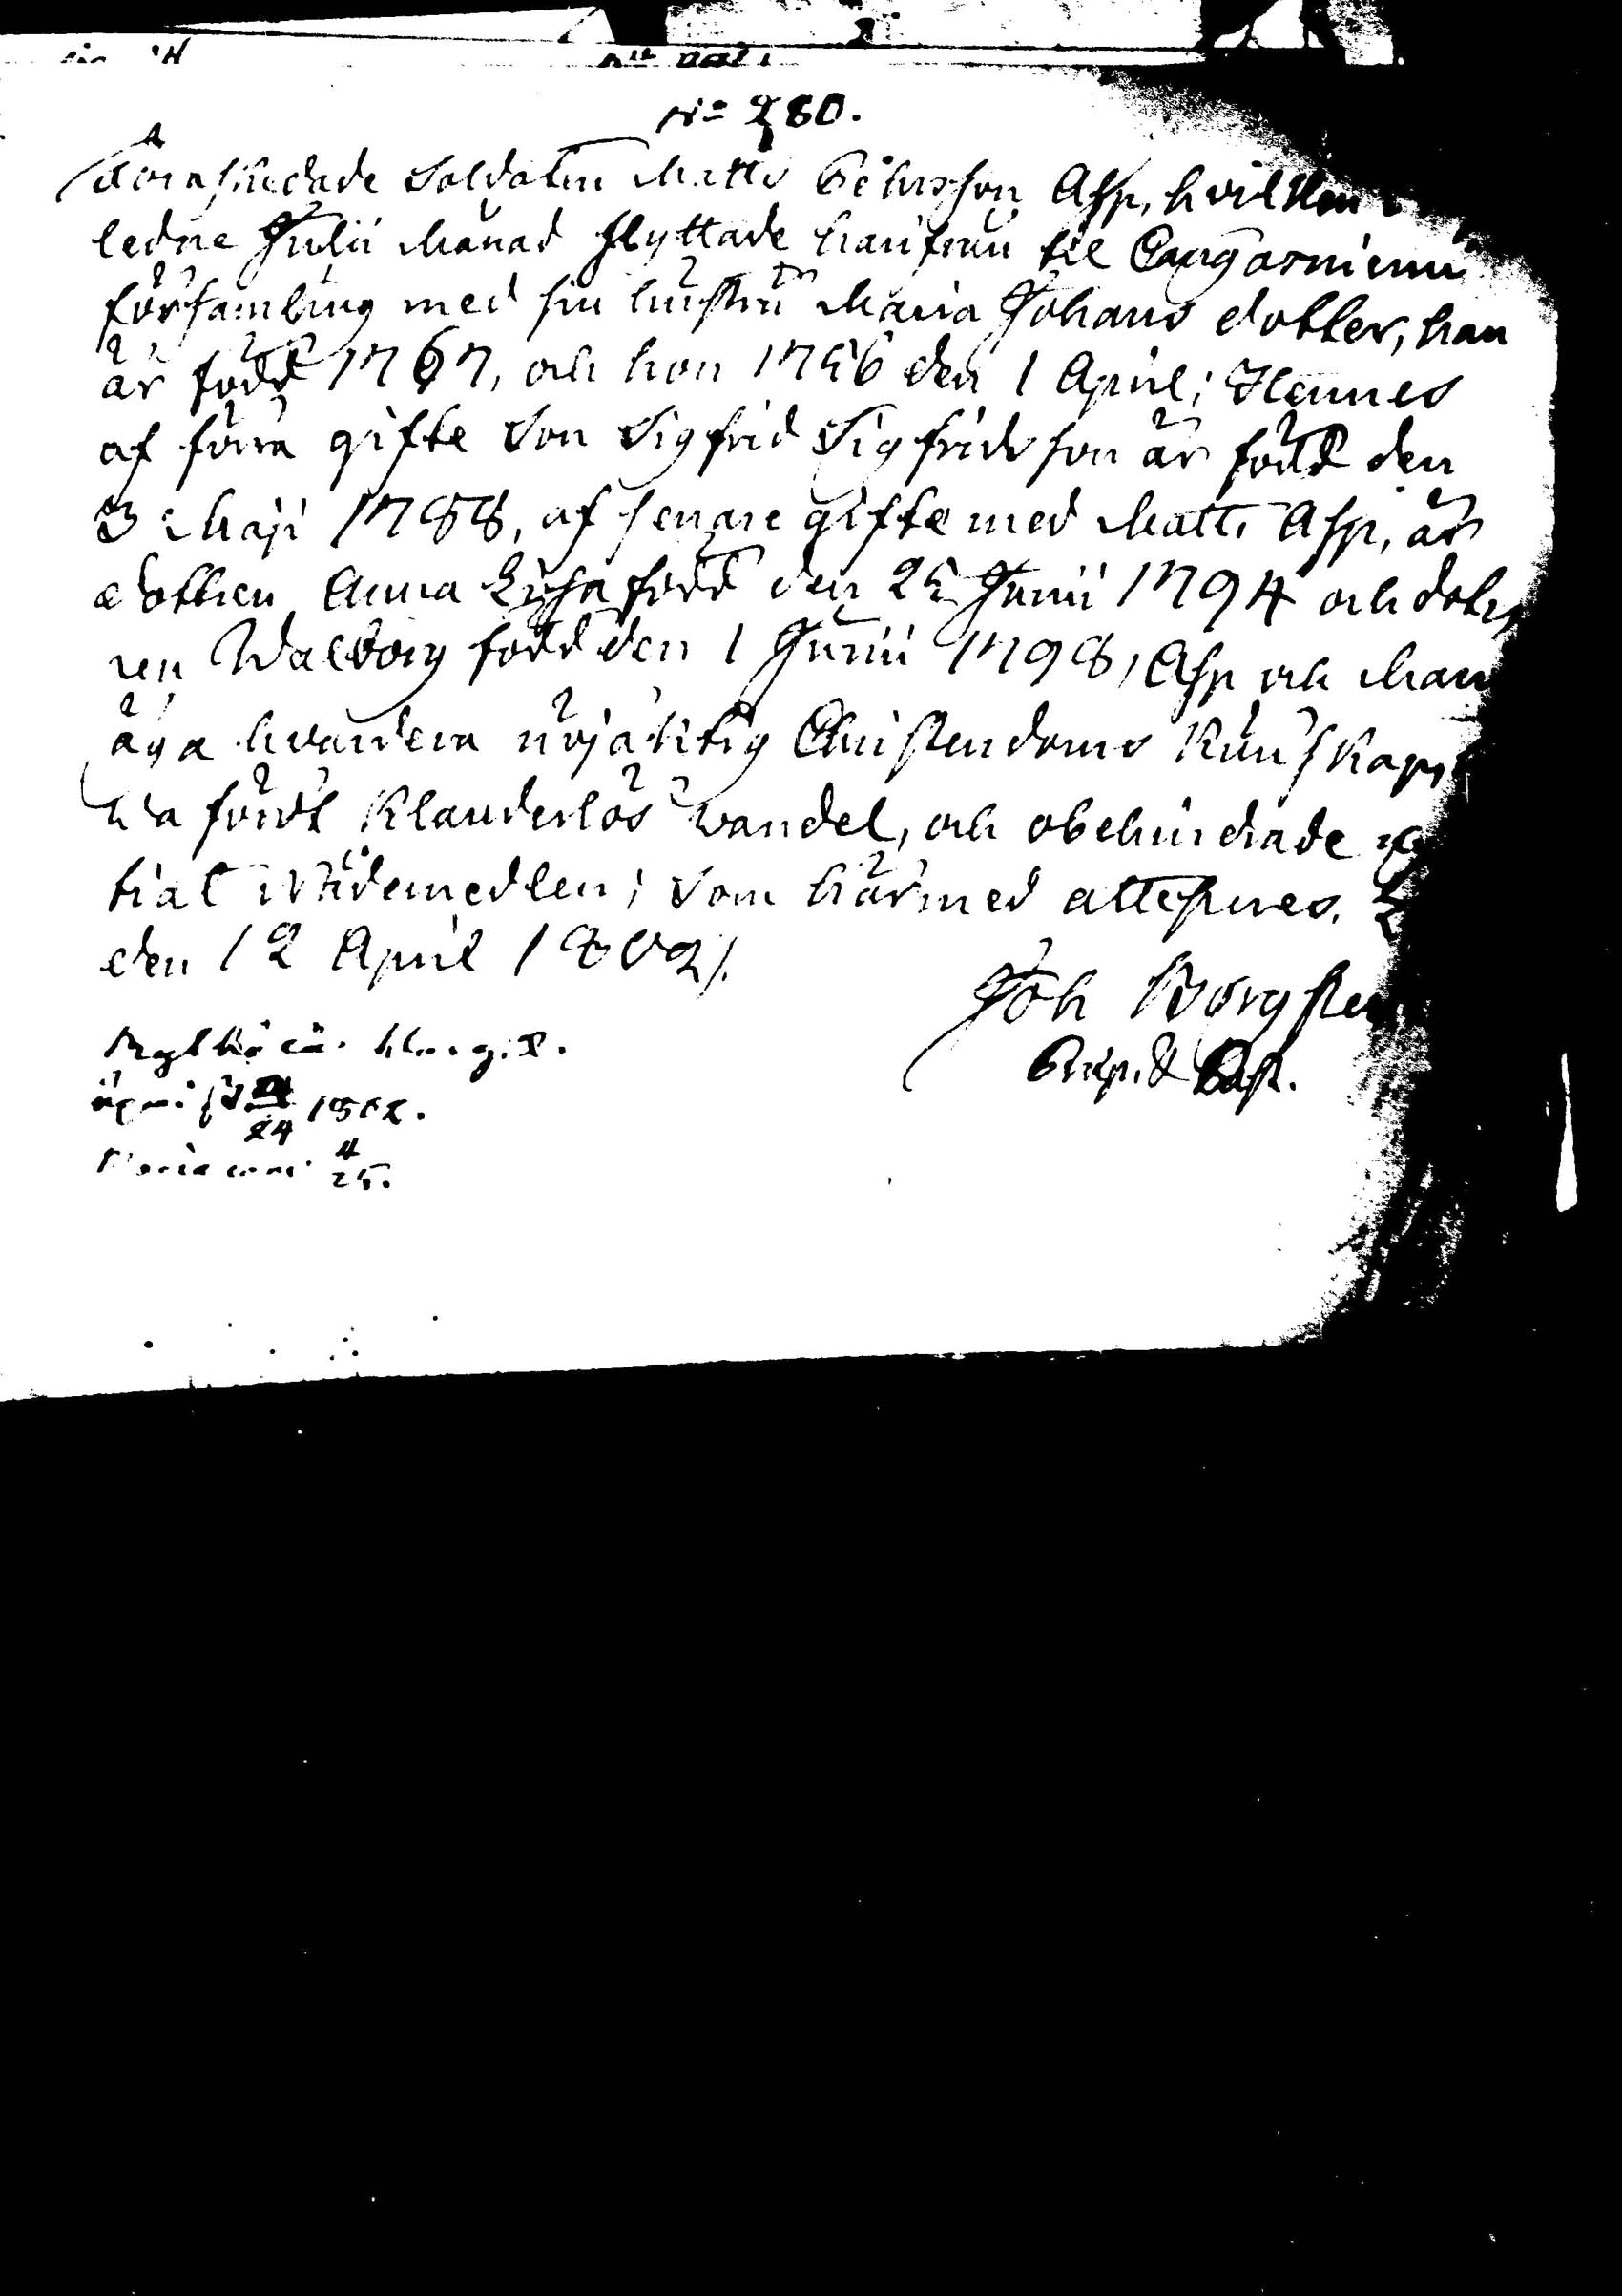 No 280.
Afskedade Soldaten Matts Ersson Asp, hvilken
ledne Julii Månad flyttade härifrån til Cangasniemi
församling med sin hustru Maria Johans dotter, han
är född 1767, och hon 1756 den 1 April; Hennes
af förra gifte Son Sigfrid Sigfridsson är född den
3 Maji 1788, af senare gifte med Matts Asp, är
dottren Anna Lisa född den 25 Junii 1794 och dott
ren Walborg född den 1 Junii 1798, Asp och Mari
äga hvardera nöjaktig Christendoms Kunskap,
ha fördt Klanderlös vandel, och obehindrade
til Nådemedlen; Som härmed attesteres.
den 12 April 1802.
Joh Borgste
Past.
1802.
24
Maria 4
25.